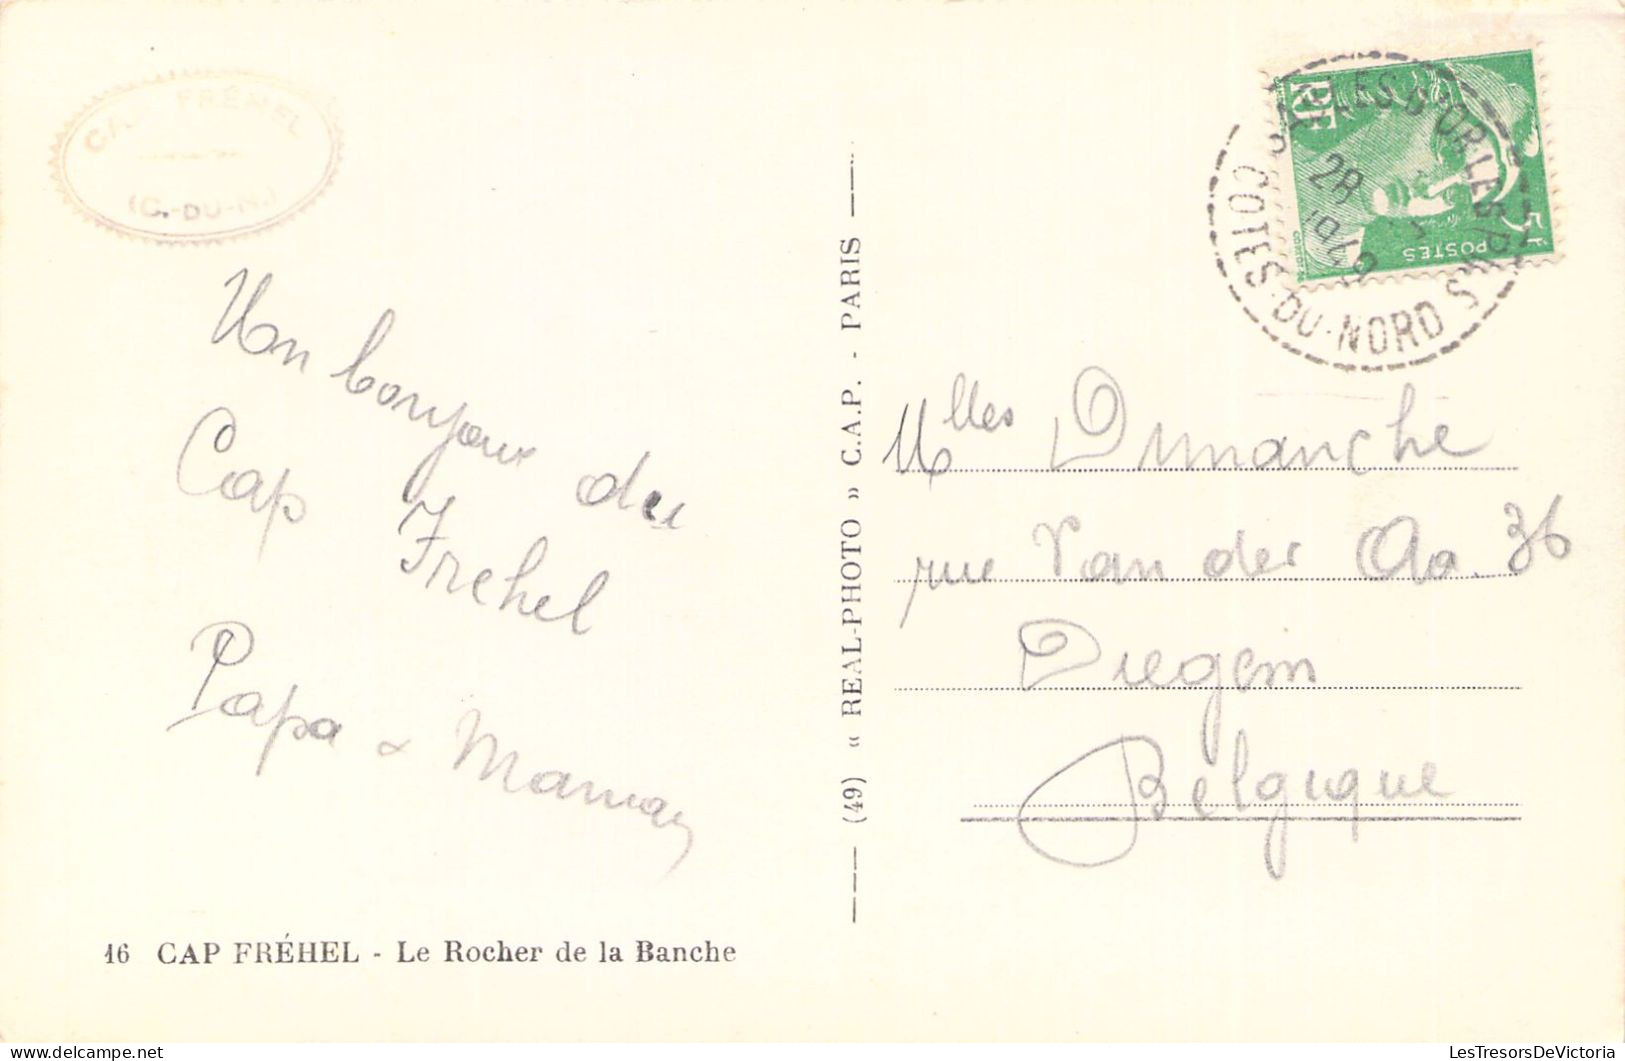 CAP FRÉHEL
(C.-DU-N.)
Un bonjour du
Cap Frehel
Papa & Maman
16 CAP FRÉHEL - Le Rocher de la Banche
(49) « REAL-PHOTO » C.A.P. - PARIS
RF
5F
POSTES
SABLES-D'OR-LES-PINS
28
1949
COTES-DU-NORD
Mlles Dimanche
rue Van der Aa. 36
Diegem
Belgique
LesTresorsDeVictoria